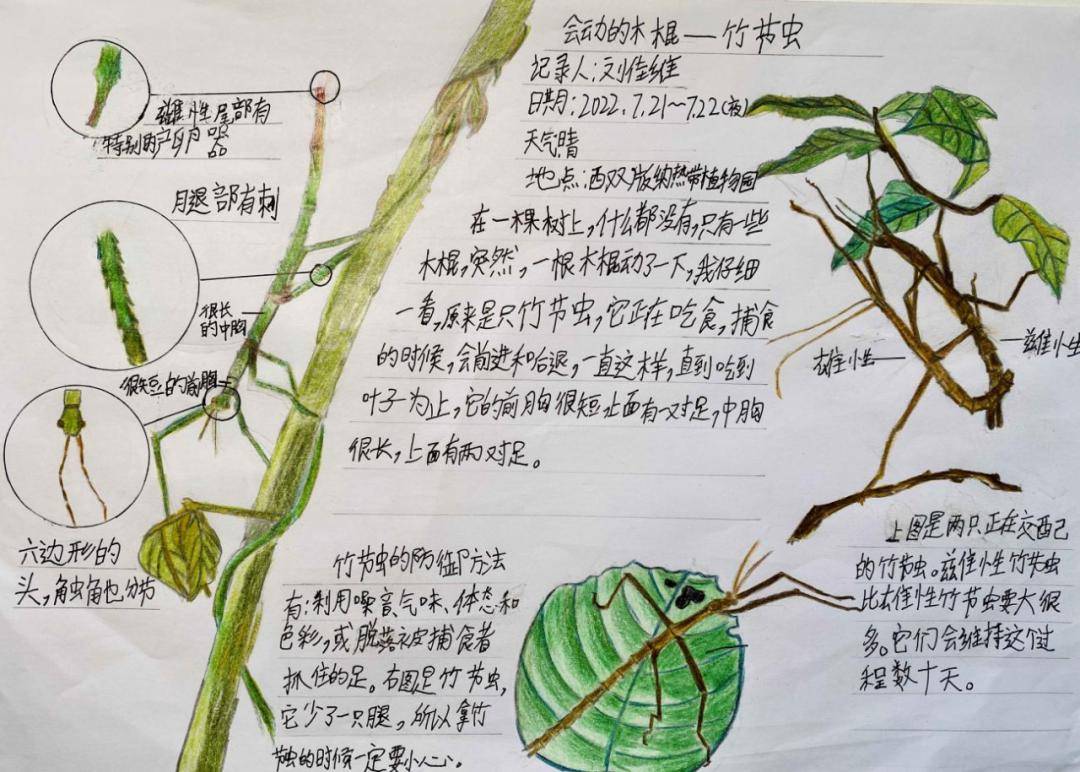 会动的木棍——竹节虫
记录人:刘佳维
日期:2022.7.21~7.22(夜)
天气晴
地点:西双版纳热带植物园
在一棵树上,什么都没有,只有一些
木棍,突然,一根木棍动了一下,我仔细
一看,原来是只竹节虫,它正在吃食,捕食
的时候,会前进和后退,一直这样,直到吃到
叶子为止,它的前胸很短,上面有一对足,中胸
很长,上面有两对足。
雌性尾部有
特别的产卵器
腿部有刺
很长
的中胸
很短的前胸
六边形的
头,触角也分节
竹节虫的防御方法
有:利用噪音、气味、体态和
色彩,或脱落被捕食者
抓住的足。右图是竹节虫,
它少了一只腿,所以拿竹
节虫的时候一定要小心。
雄性
雌性
上图是两只正在交配
的竹节虫。雌性竹节虫
比雄性竹节虫要大很
多。它们会维持这个过
程数十天。